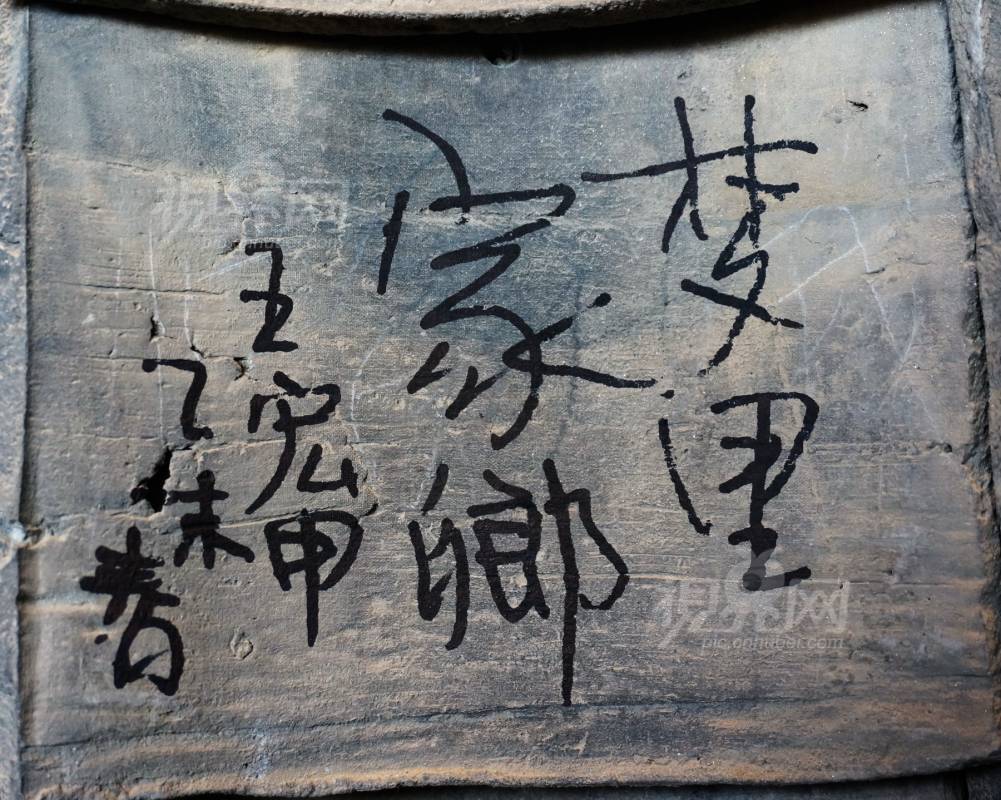 梦里
家鄉
王宏甲
乙未春
pic.cnhubei.com